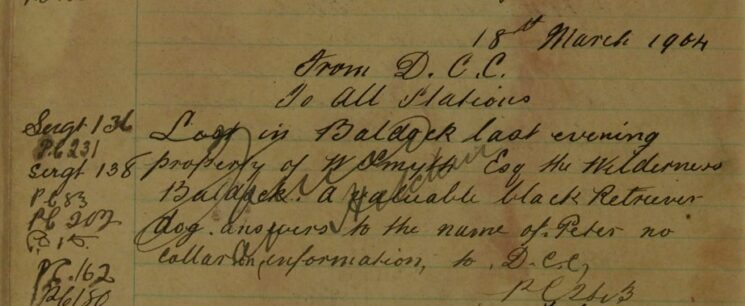 18th March 1904
From D.C.C.
To All Stations
Sergt 136
P.C. 231
Sergt 138
P.C. 83
P.C. 202
P.C. 162
P.C. 180
Lost in Baldock last evening
property of W Smyth Esq the Wilderness
Baldock. A valuable black Retriever
dog. answers to the name of Peter no
collar on, information, to D.C.C,